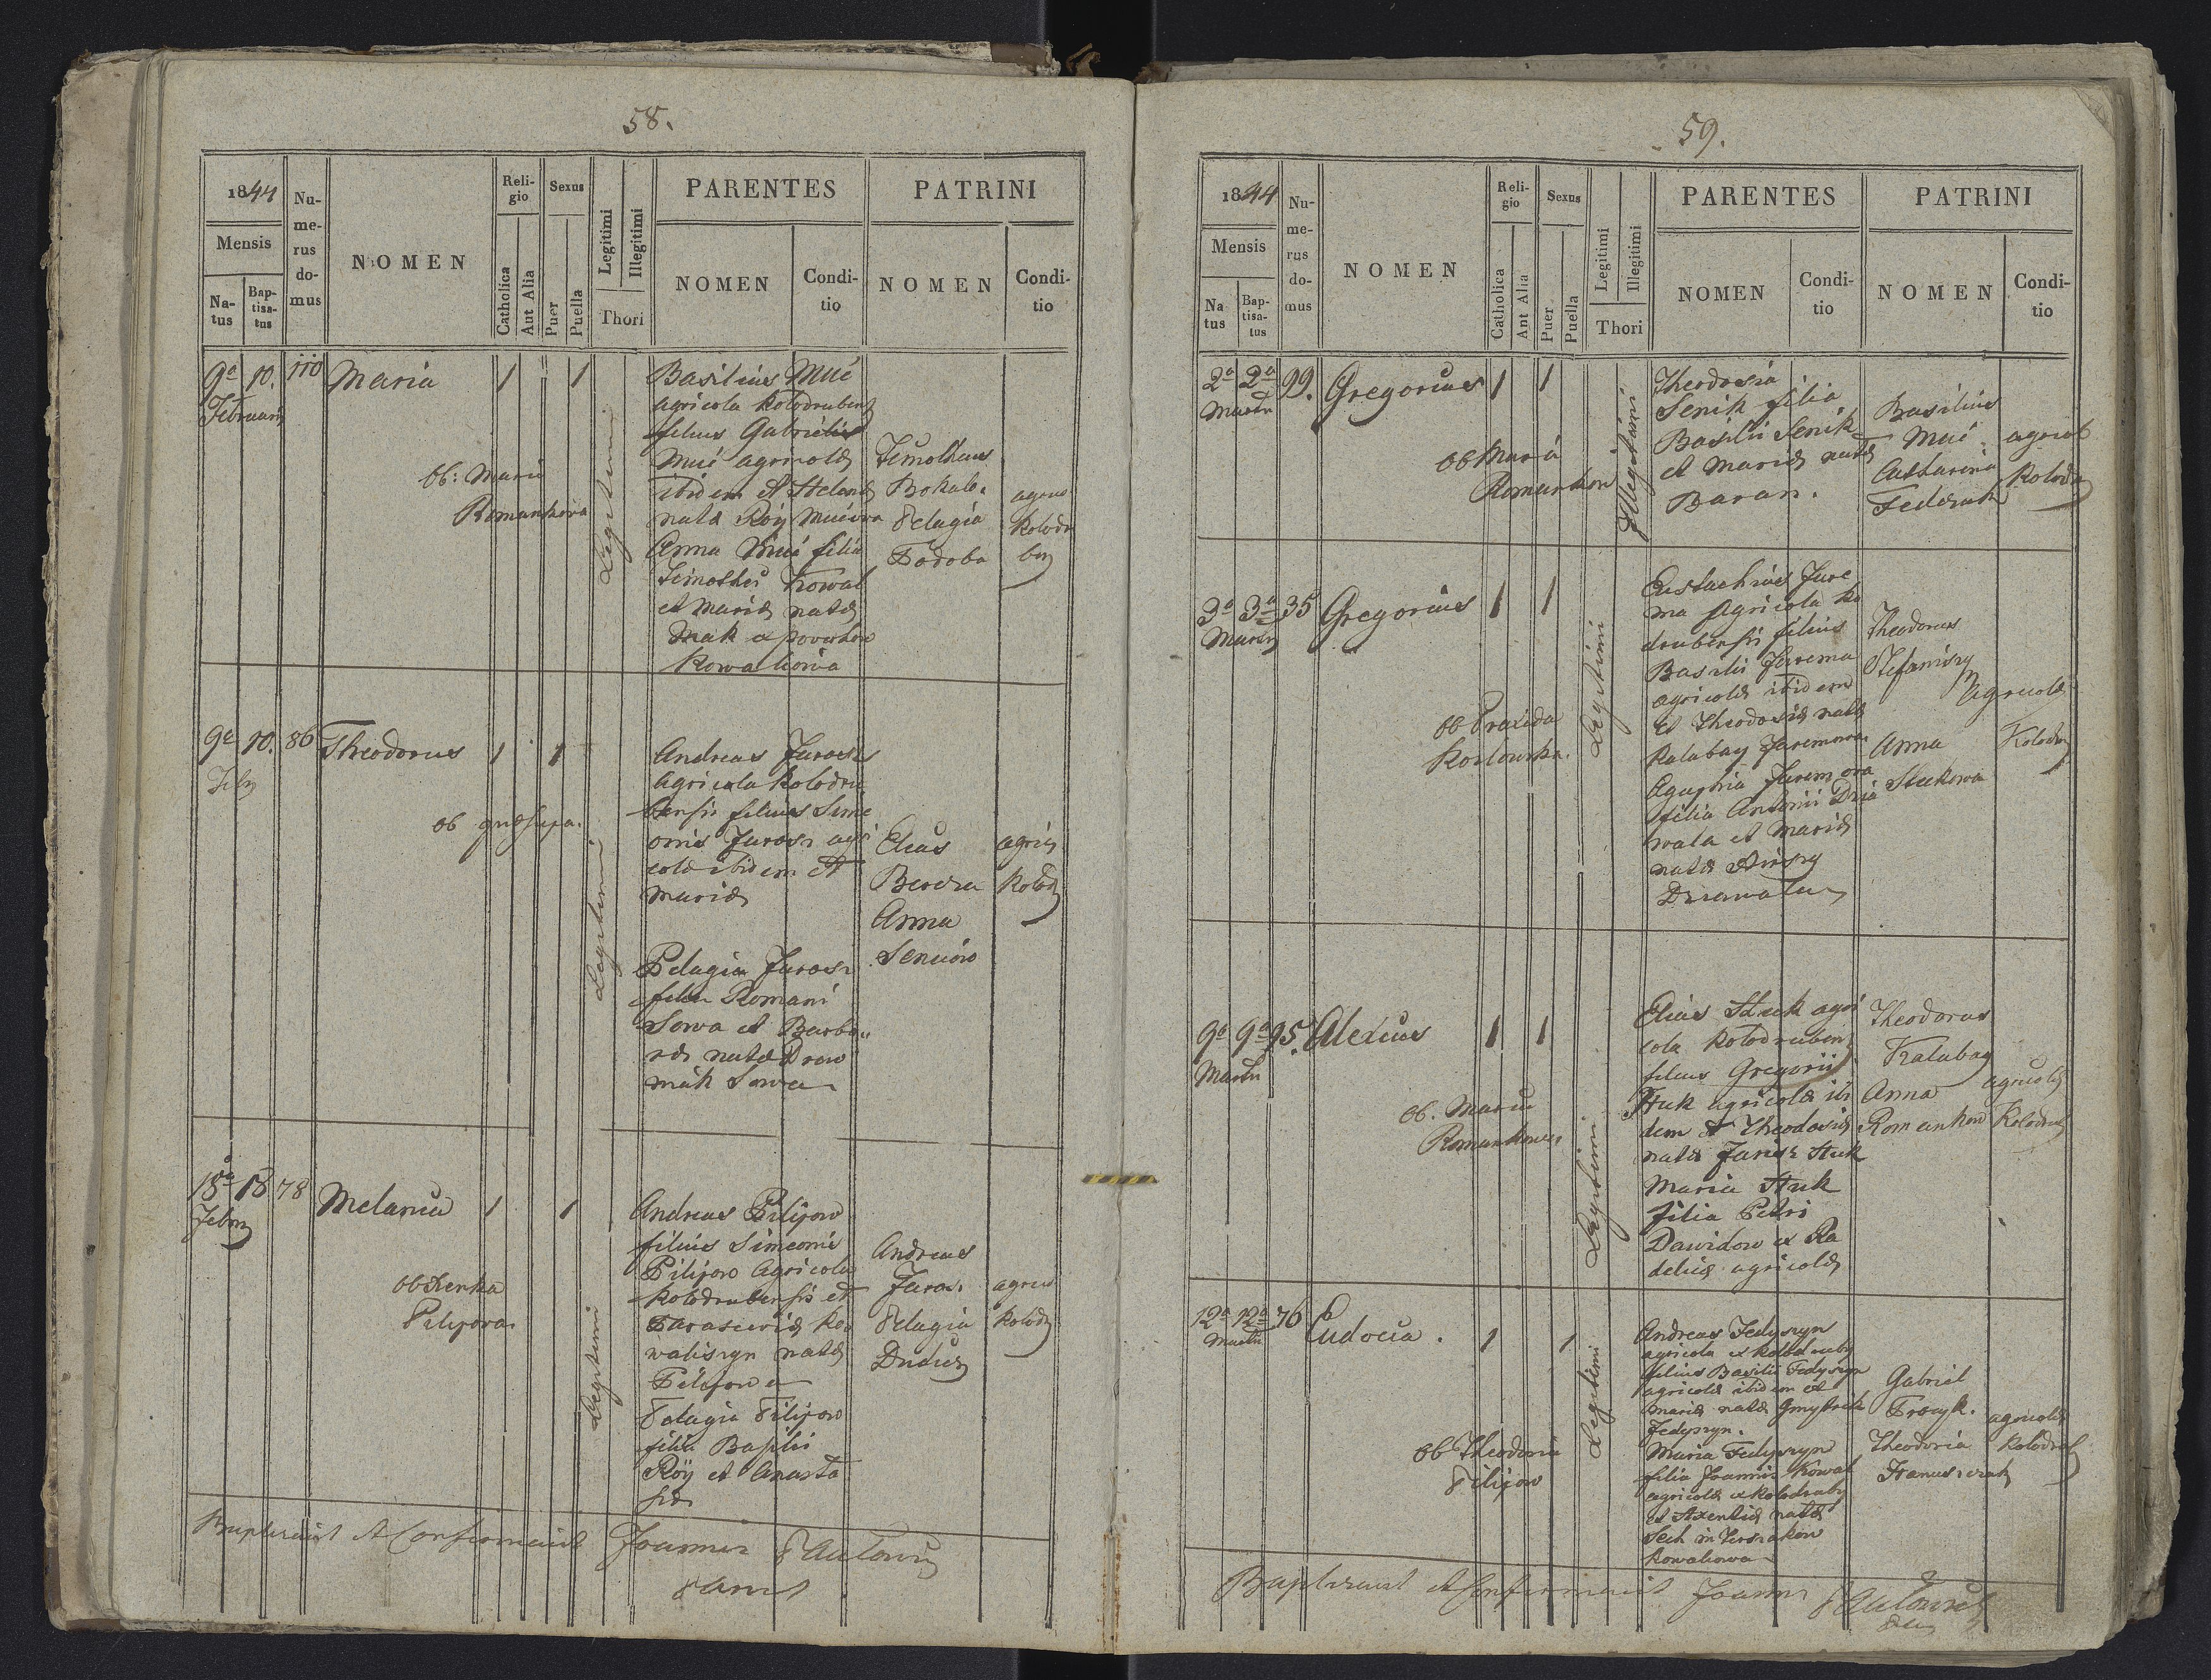 58.
1844
Mensis
Na-
tus
Bap-
tisa-
tus
Nu-
me-
rus
do-
mus
NOMEN
Reli-
gio
Catholica
Aut Alia
Sexus
Puer
Puella
Legitimi
Illegitimi
Thori
PARENTES
NOMEN
Condi-
tio
PATRINI
NOMEN
Condi-
tio
9a 10. 110 Maria 1 1
Februarii
Ob: Maria
Romankowa
Legitimi
Basilius Muć
agricola Kolodruben
filius Gabrielis
Muć agricolæ
ibidem et Helenæ
natæ Roy Muciowa
Anna Muć filia
Timothei Kowal
et Mariæ natæ
Mak ex powerchow
Kowaliowa
Timotheus
Pelagia
Fodoba
agric
Kolodr
9a 10. 86 Theodorus 1 1
Febr
ob quæ supra.
Legitimi
Andreas Jurosz
Agricola Kolodru
bensis filius Sime
onis Jurosz agri
colæ ibidem et
Mariæ
Pelagia Jurosz
filia Romani
Sowa et Barba
ræ natæ Drow
mak Sowa
Elias
Berera
Anna
Seniow
agric
Kolod
18a 18 78 Melania 1 1
Febr
ob Xenka
Pilipowa
Legitimi
Andreas Pilipow
filius Simeonis
Pilipow Agricola
Kolodrubensis et
Parasceviæ Ko
waliszyn natæ
Pilipow
Pelagia Pilipow
filia Basilii
Roy et Anasta
siæ
Andreas
Juros.
Pelagia
agric
Kolod
Baptisavit et Confirmavit Joannes
59.
1844
Mensis
Na
tus
Bap-
tisa-
tus
Nu-
me-
rus
do-
mus
NOMEN
Reli-
gio
Catholica
Ant Alia
Sexus
Puer
Puella
Legitimi
Illegitimi
Thori
PARENTES
NOMEN
Condi-
tio
PATRINI
NOMEN
Condi-
tio
2a 2a 99. Gregorius 1 1
Martii
ob Maria
Romankow
Illegitimi
Theodosia
Senik filia
Basilii Senik
et Mariæ natæ
Baran.
Basilius
Muć
Catharina
Federak
agricol
Kolodr
3a 3a 35 Gregorius 1 1
Martii
ob Praxeda
Kozlowska.
Legitimi
Eustachius Jare
ma Agricola Ko
drubensis filius
Basilii Jarema
agricolæ ibidem
et Theodosiæ natæ
Kalabay Jaremowa
Agaphia Jaremowa
filia Antonii Dzia
wala et Mariæ
natæ
Theodorus
Stefaniszy
Anna
Stukowa
Agricolæ
Kolodr
9a 9a 95. Alexius 1 1
Martii
ob. Maria
Romankowa
Legitimi
Elias Stuk agri
cola Kolodruben
filius Gregorii
Stuk agricolæ ibi
dem et Theodosiæ
natæ Jurisz Stuk
Maria Stuk
filia Petri
Dawidow ex Ra
delicz agricolæ
Theodorus
Kalabay
Anna
Romankow
agricolæ
Kolodrub
12a 12a 76 Eudocia. 1 1
Martii
ob Theodoria
Pilipow
Legitimi
Andreas Fedyszyn
agricola ex Kolodruby
filius Basilii Fedyszyn
agricolæ ibidem et
Mariæ natæ Gmytrek
Fedyszyn.
Maria Fedyszyn
filia Joannis Kowal
agricolæ ex Kolodruby
et Axentiæ natæ
Sech in Terszakow
Kowaliowa
Gabriel
Procyk.
Theodoria
Hanuszczak
agricolæ
Kolodrub
Baptisavit et Confirmavit Joannes